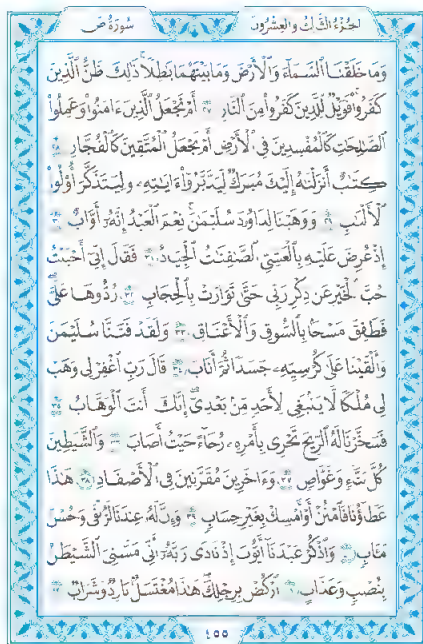 الجزء الثالث والعشرون سورة ص
وَمَا خَلَقْنَا ٱلسَّمَآءَ وَٱلْأَرْضَ وَمَا بَيْنَهُمَا بَٰطِلًا ۚ ذَٰلِكَ ظَنُّ ٱلَّذِينَ
كَفَرُوا۟ ۚ فَوَيْلٌ لِّلَّذِينَ كَفَرُوا۟ مِنَ ٱلنَّارِ ٢٧ أَمْ نَجْعَلُ ٱلَّذِينَ ءَامَنُوا۟ وَعَمِلُوا۟
ٱلصَّٰلِحَٰتِ كَٱلْمُفْسِدِينَ فِى ٱلْأَرْضِ أَمْ نَجْعَلُ ٱلْمُتَّقِينَ كَٱلْفُجَّارِ ٢٨
كِتَٰبٌ أَنزَلْنَٰهُ إِلَيْكَ مُبَٰرَكٌ لِّيَدَّبَّرُوٓا۟ ءَايَٰتِهِۦ وَلِيَتَذَكَّرَ أُو۟لُوا۟
ٱلْأَلْبَٰبِ ٢٩ وَوَهَبْنَا لِدَاوُۥدَ سُلَيْمَٰنَ ۚ نِعْمَ ٱلْعَبْدُ ۖ إِنَّهُۥٓ أَوَّابٌ ٣٠
إِذْ عُرِضَ عَلَيْهِ بِٱلْعَشِىِّ ٱلصَّٰفِنَٰتُ ٱلْجِيَادُ ٣١ فَقَالَ إِنِّىٓ أَحْبَبْتُ
حُبَّ ٱلْخَيْرِ عَن ذِكْرِ رَبِّى حَتَّىٰ تَوَارَتْ بِٱلْحِجَابِ ٣٢ رُدُّوهَا عَلَىَّ ۖ
فَطَفِقَ مَسْحًۢا بِٱلسُّوقِ وَٱلْأَعْنَاقِ ٣٣ وَلَقَدْ فَتَنَّا سُلَيْمَٰنَ
وَأَلْقَيْنَا عَلَىٰ كُرْسِيِّهِۦ جَسَدًا ثُمَّ أَنَابَ ٣٤ قَالَ رَبِّ ٱغْفِرْ لِى وَهَبْ
لِى مُلْكًا لَّا يَنۢبَغِى لِأَحَدٍ مِّنۢ بَعْدِىٓ ۖ إِنَّكَ أَنتَ ٱلْوَهَّابُ ٣٥
فَسَخَّرْنَا لَهُ ٱلرِّيحَ تَجْرِى بِأَمْرِهِۦ رُخَآءً حَيْثُ أَصَابَ ٣٦ وَٱلشَّيَٰطِينَ
كُلَّ بَنَّآءٍ وَغَوَّاصٍ ٣٧ وَءَاخَرِينَ مُقَرَّنِينَ فِى ٱلْأَصْفَادِ ٣٨ هَٰذَا
عَطَآؤُنَا فَٱمْنُنْ أَوْ أَمْسِكْ بِغَيْرِ حِسَابٍ ٣٩ وَإِنَّ لَهُۥ عِندَنَا لَزُلْفَىٰ وَحُسْنَ
مَـَٔابٍ ٤٠ وَٱذْكُرْ عَبْدَنَآ أَيُّوبَ إِذْ نَادَىٰ رَبَّهُۥٓ أَنِّى مَسَّنِىَ ٱلشَّيْطَٰنُ
بِنُصْبٍ وَعَذَابٍ ٤١ ٱرْكُضْ بِرِجْلِكَ ۖ هَٰذَا مُغْتَسَلٌۢ بَارِدٌ وَشَرَابٌ ٤٢
٤٥٥